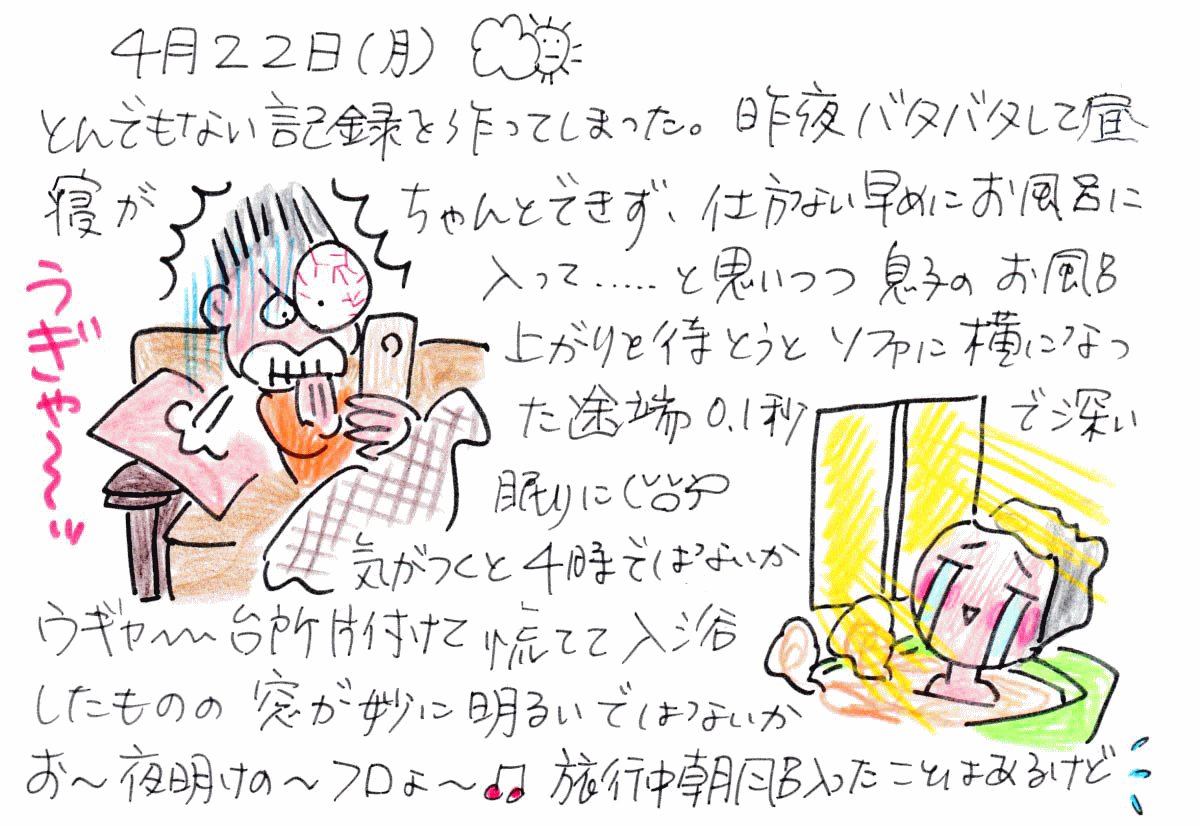 4月22日(月)
とんでもない記録を作ってしまった。昨夜バタバタして昼
寝がちゃんとできず、仕方ない早めにお風呂に
入って……と思いつつ息子のお風呂
上がりを待とうとソファに横になっ
た途端0.1秒で深い
眠りに(笑)
気がつくと4時ではないか
ウギャ〜〜台所片付けて慌てて入浴
したものの窓が妙に明るいではないか
お〜夜明けの〜フロよ〜♫旅行中朝風呂入ったことはあるけど
うぎゃ〜〜ッ